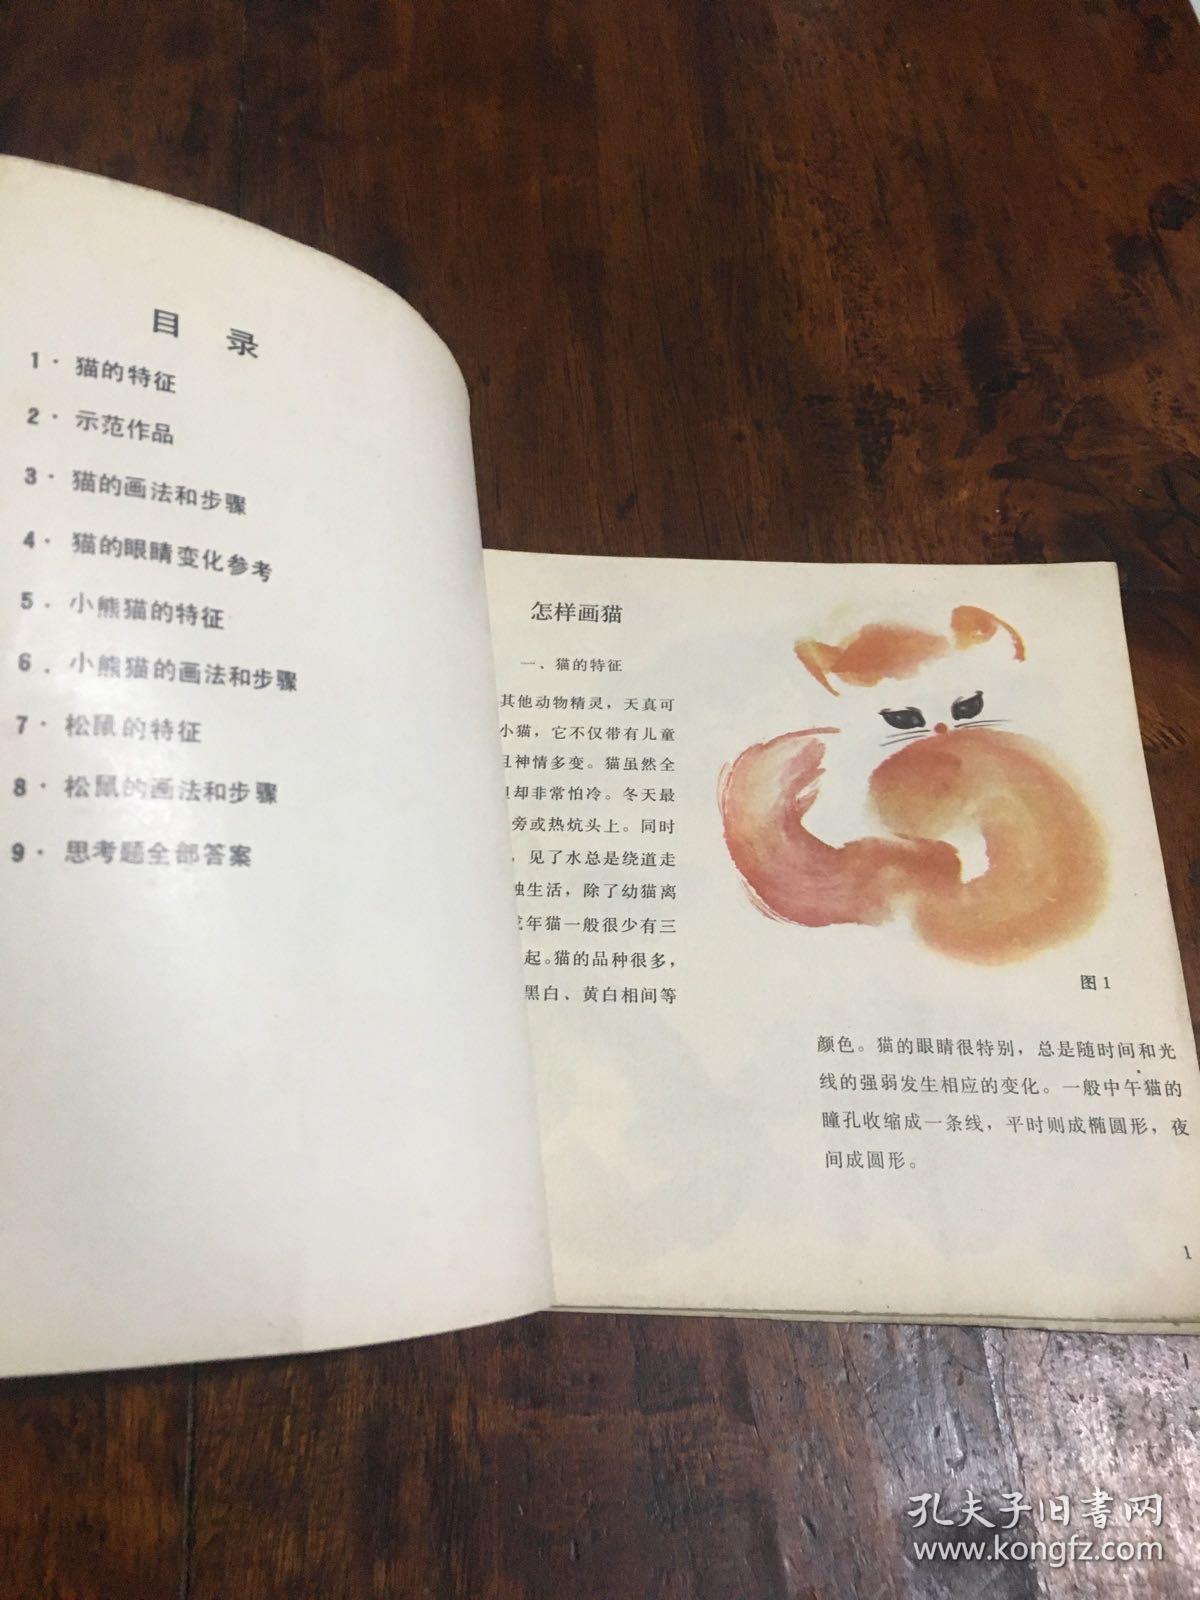 目 录
1·猫的特征
2·示范作品
3·猫的画法和步骤
4·猫的眼睛变化参考
5．小熊猫的特征
6．小熊猫的画法和步骤
7·松鼠的特征
8·松鼠的画法和步骤
9·思考题全部答案
怎样画猫
一、猫的特征
其他动物精灵，天真可
小猫，它不仅带有儿童
神情多变。猫虽然全
却非常怕冷。冬天最
旁或热炕头上。同时
，见了水总是绕道走
生活，除了幼猫离
年猫一般很少有三
起。猫的品种很多，
黑白、黄白相间等
图1
颜色。猫的眼睛很特别，总是随时间和光
线的强弱发生相应的变化。一般中午猫的
瞳孔收缩成一条线，平时则成椭圆形，夜
间成圆形。
1
孔夫子旧书网
www.kongfz.com